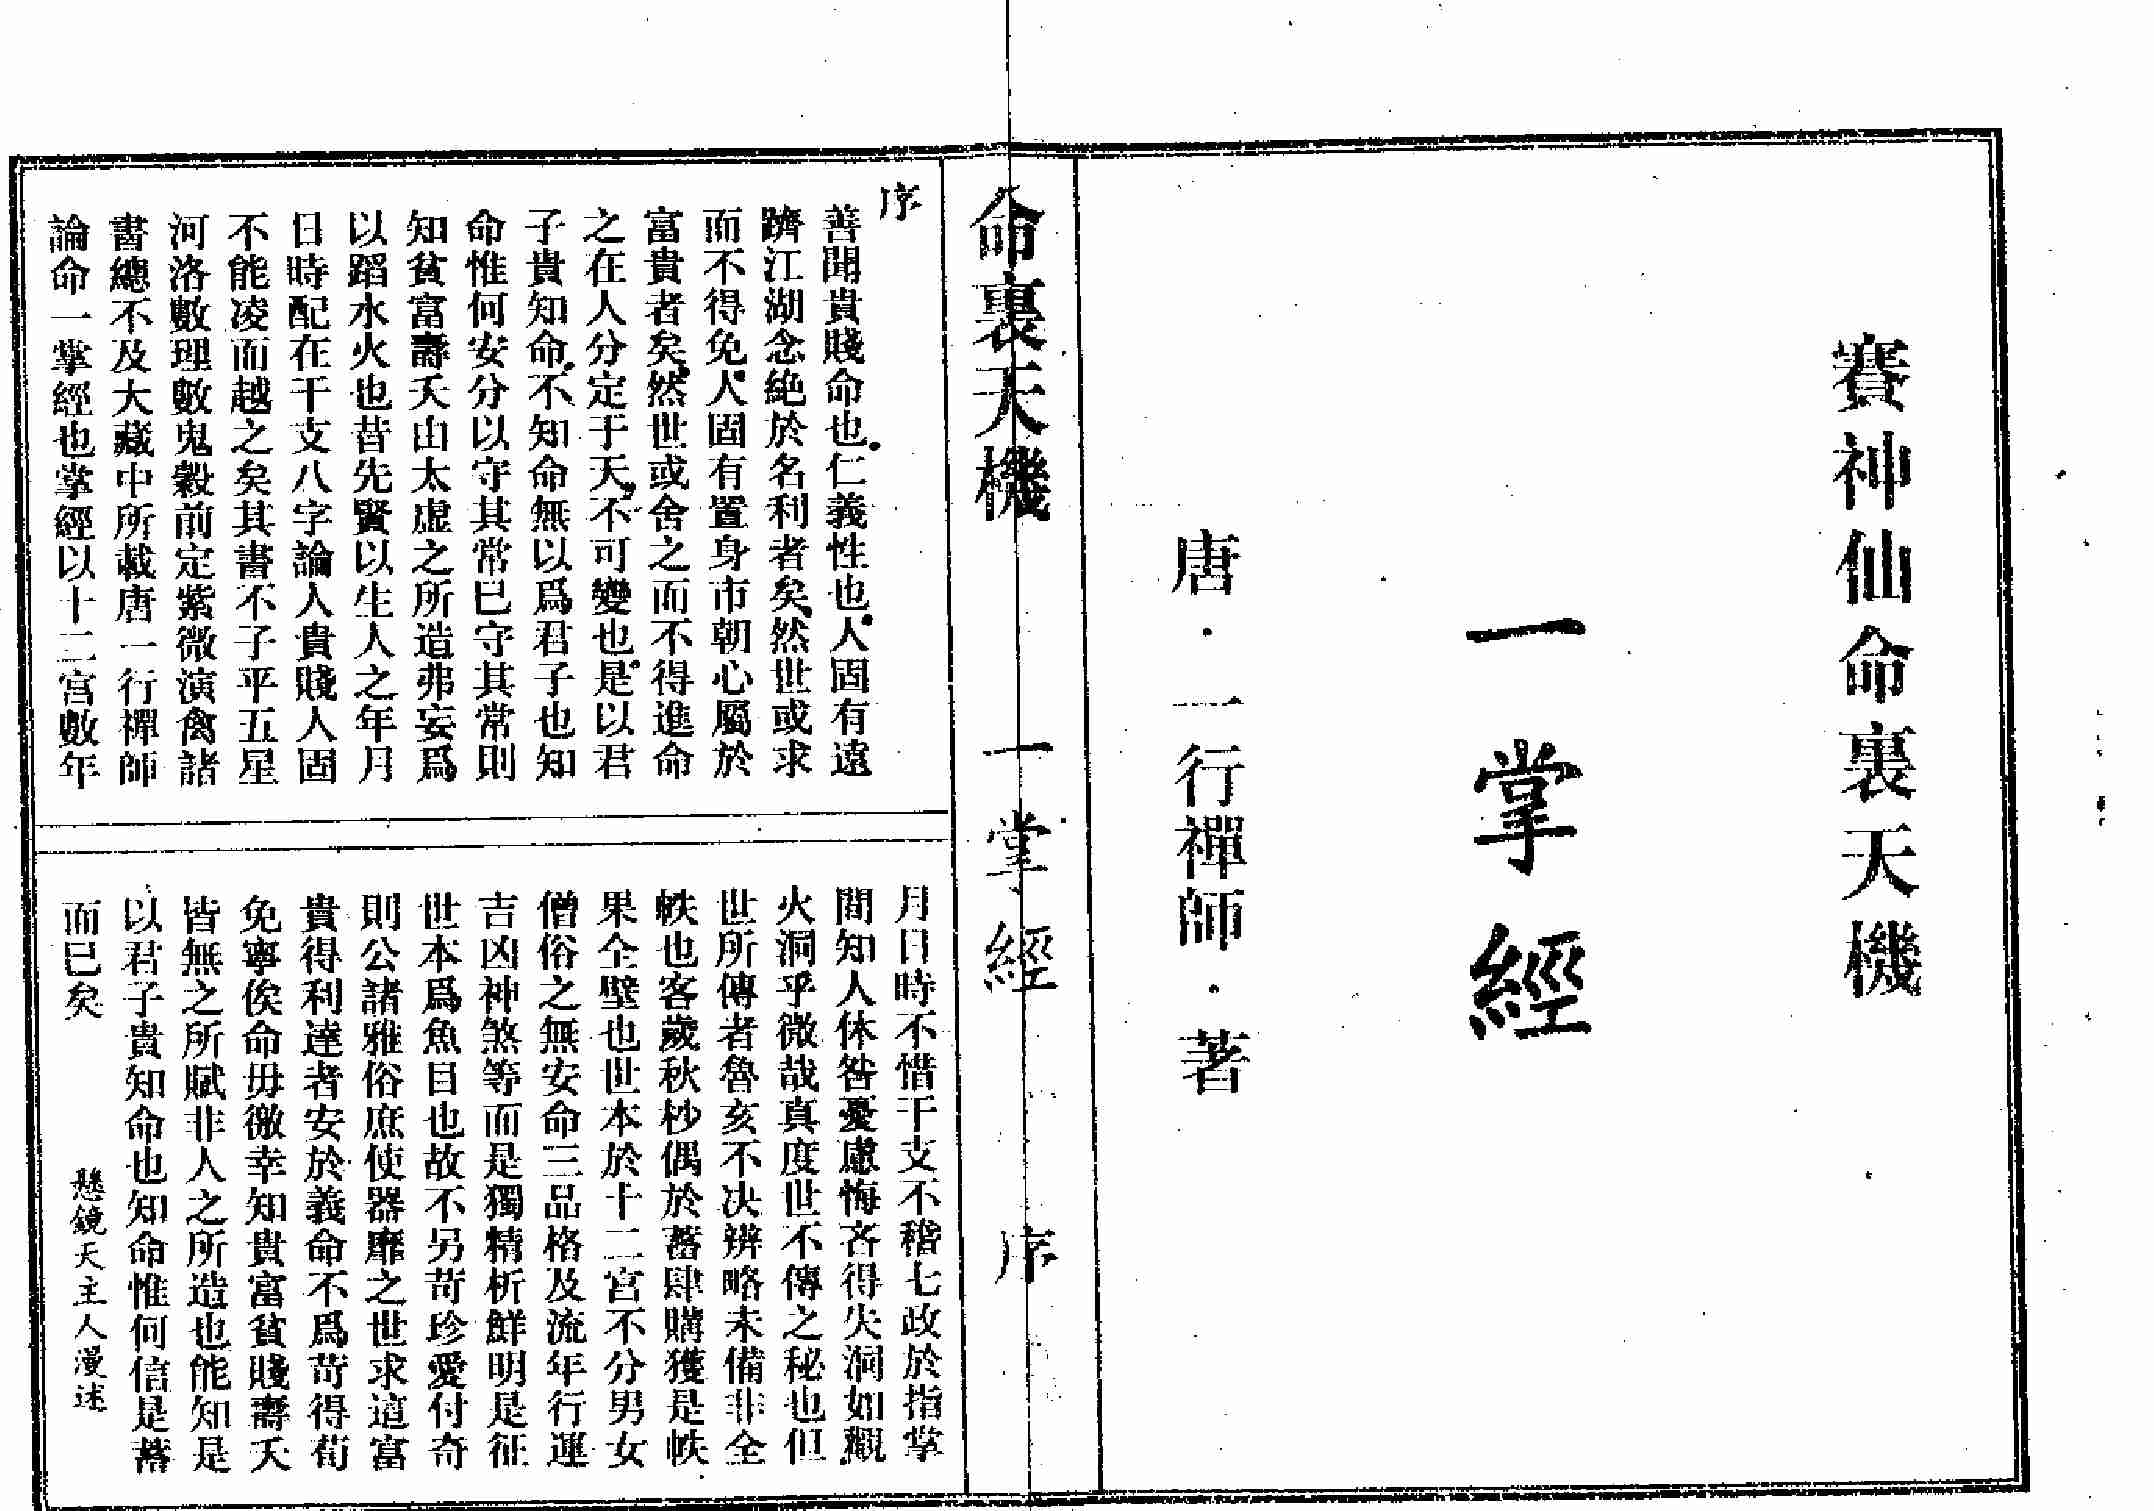 賽神仙命裏天機
一掌經
唐·一行禪師·著
命裏天機 一掌經 序
序
善聞貴賤命也仁義性也人固有遠
躋江湖念絶於名利者矣然世或求
而不得免人固有置身市朝心屬於
富貴者矣然世或舍之而不得進命
之在人分定于天不可變也是以君
子貴知命不知命無以爲君子也知
命惟何安分以守其常已守其常則
知貧富壽夭由太虛之所造弗妄爲
以蹈水火也昔先賢以生人之年月
日時配在干支八字論人貴賤人固
不能凌而越之矣其書不子平五星
河洛數理數鬼穀前定紫微演禽諸
書總不及大藏中所載唐一行禪師
論命一掌經也掌經以十二宮數年
月日時不惜干支不稽七政於指掌
間知人休咎憂慮悔吝得失洞如觀
火洞乎微哉真度世不傳之秘也但
世所傳者魯亥不决辨略未備非全
帙也客歲秋杪偶於蓄肆購獲是帙
果全壁也世本於十二宮不分男女
僧俗之無安命三品格及流年行運
吉凶神煞等而是獨精析鮮明是征
世本爲魚目也故不另苛珍愛付奇
則公諸雅俗庶使器靡之世求這富
貴得利達者安於義命不爲苛得荀
免寧俟命毋徼幸知貴富貧賤壽夭
皆無之所賦非人之所造也能知是
以君子貴知命也知命惟何信是蓄
而已矣
懸鏡天主人漫述